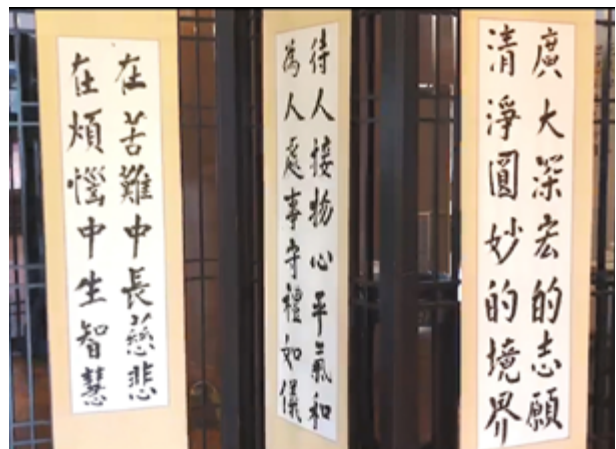 廣大深宏的志願
清淨圓妙的境界
待人接物心平氣和
為人處事守禮如儀
在苦難中長慈悲
在煩惱中生智慧